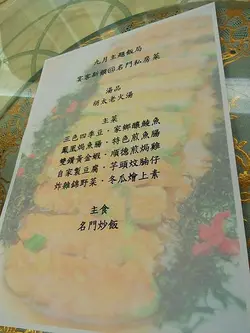 九月主題飯局
宴客新煮@名門私房菜
湯品
胡太老火湯
主菜
三色四季豆、家鄉釀鯪魚
鳳凰焗魚腸、特色煎魚腸
雙鑲黃金蝦、順德煎焗雞
自家製豆腐、芋頭炆腩仔
炸雜錦野菜、冬瓜燴上素
主食
名門炒飯